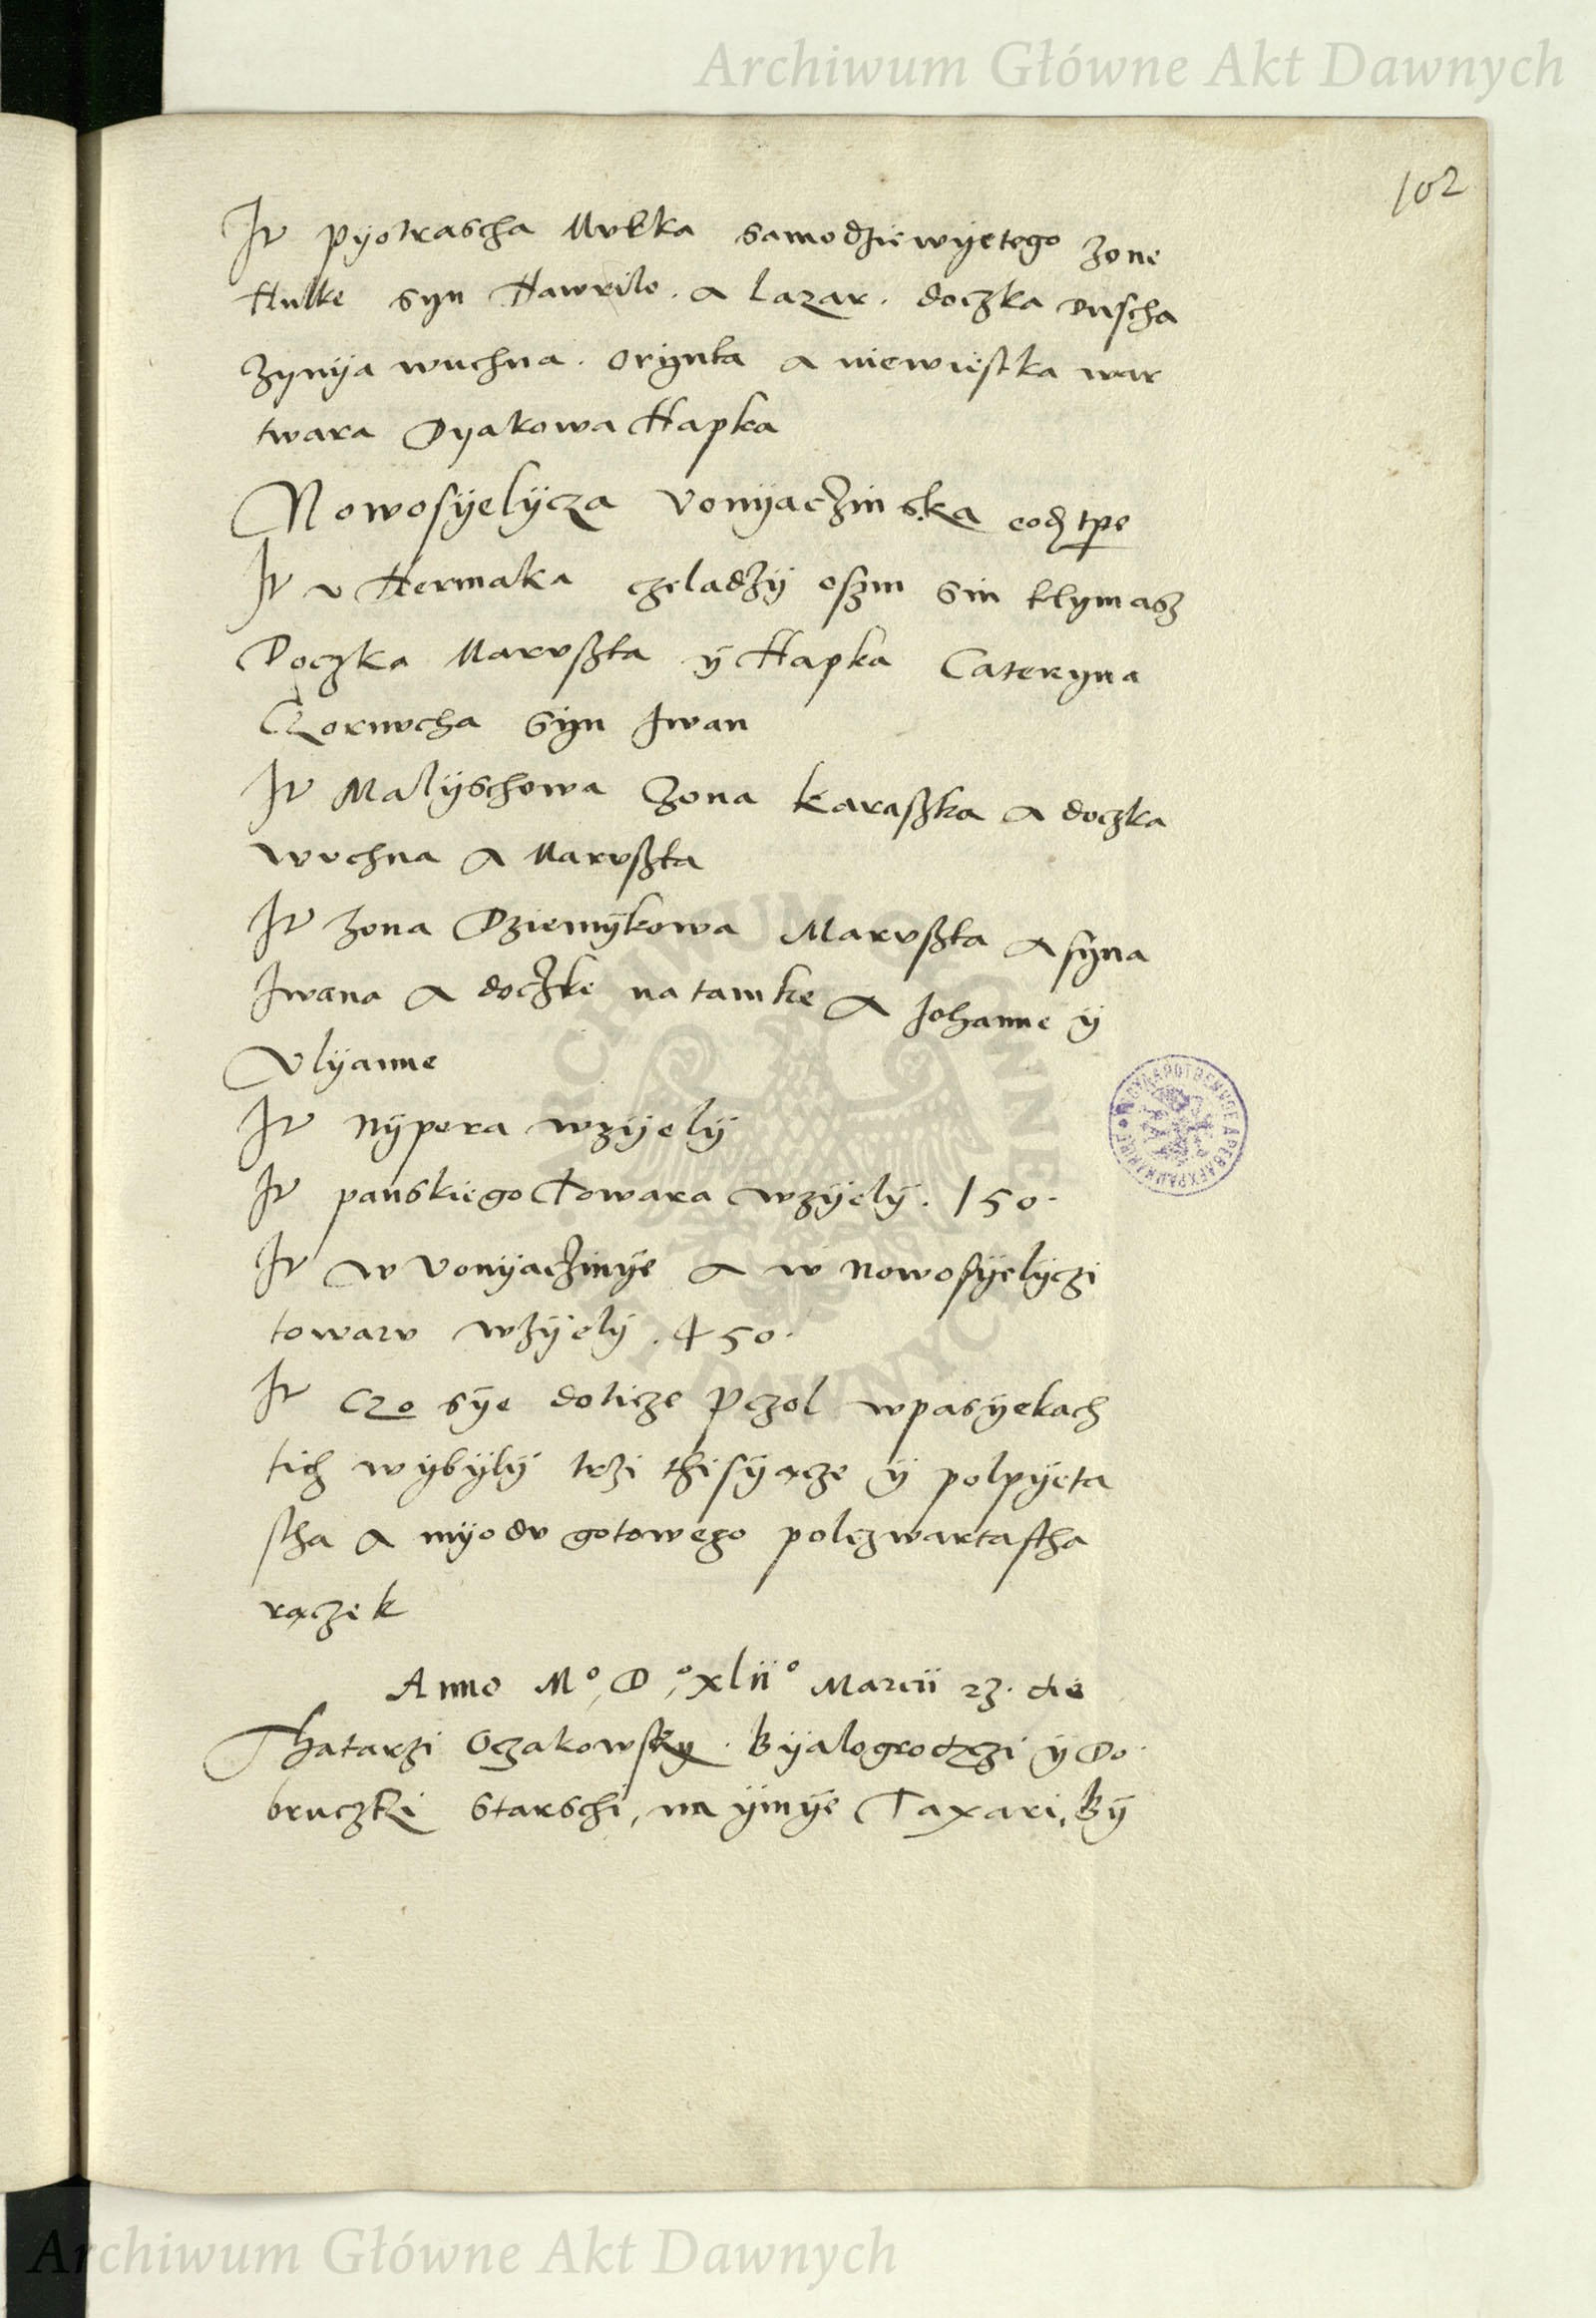 Archiwum Główne Akt Dawnych
102
It pyotrascha Mvkka samodziewyetego zone
Hulke syn Hawrilo . a lazar . doczka duscha
zynya wuchna . orynka a niewiestka war
twara Dyakowa Hapka
Nowosyelycza vonyaczinska eod tpe
It v Hermaka czeladzy oszm sin klymasz
Doczka Marvszka y Hapka Cateryna
Czornvcha syn Iwan
It Malyschowa zona karaszka a doczka
wvchna a Marvszka
It zona Dziemykowa Marvszka a syna
Iwana a doczke natamke a Johanne y
Vlyanne
It Nypora wzyely
It panskiego towara wzyely . 150 .
It w vonyaczinye a w nowosyelyczi
towarv wzyely . 450 .
It czo sye doticze pczol w pasyekach
tich wybyly trzi thisyącze y polpyeta
stha a myodv gotowego polczwartastha
rączek
Anno M° D° xlii° Marcii 23 . die
Thatarzi Oczakowsky . Byalogrodczi y Do
bruczki starschi , na ymye Taxari , By
Archiwum Główne Akt Dawnych